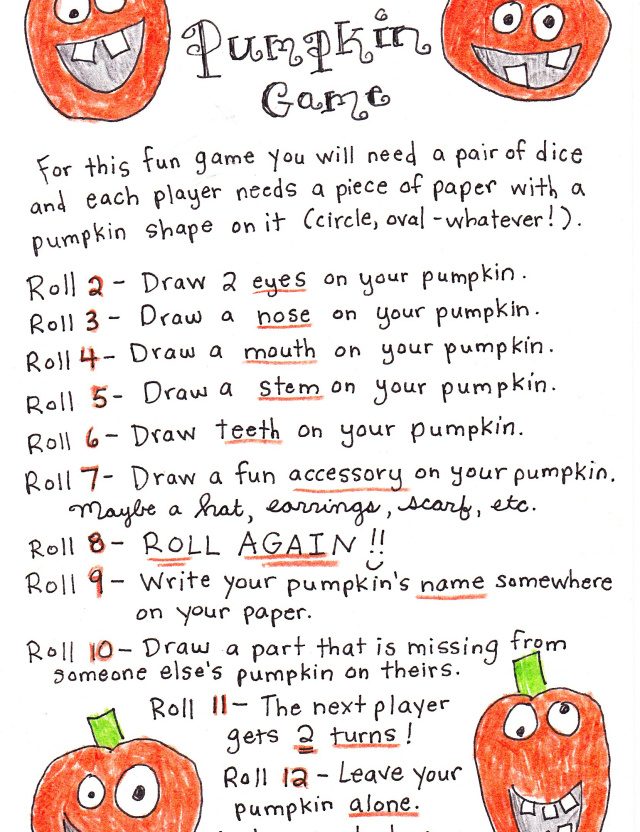 Pumpkin
Game
For this fun game you will need a pair of dice
and each player needs a piece of paper with a
pumpkin shape on it (circle, oval - whatever!).
Roll 2 - Draw 2 eyes on your pumpkin.
Roll 3 - Draw a nose on your pumpkin.
Roll 4 - Draw a mouth on your pumpkin.
Roll 5 - Draw a stem on your pumpkin.
Roll 6 - Draw teeth on your pumpkin.
Roll 7 - Draw a fun accessory on your pumpkin.
Maybe a hat, earrings, scarf, etc.
Roll 8 - ROLL AGAIN!!
Roll 9 - Write your pumpkin's name somewhere
on your paper.
Roll 10 - Draw a part that is missing from
someone else's pumpkin on theirs.
Roll 11 - The next player
gets 2 turns!
Roll 12 - Leave your
pumpkin alone.